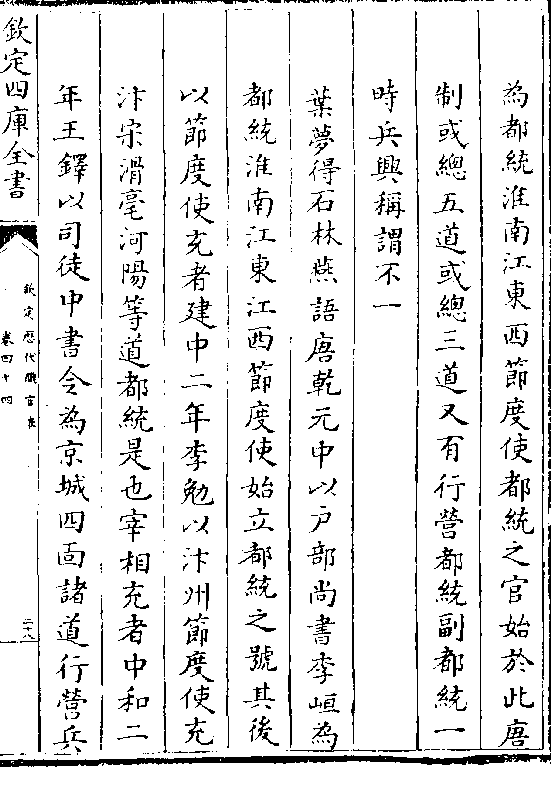 為都統淮南江東西節度使都統之官始於此唐
制或總五道或總三道又有行營都統副都統一
時兵興稱謂不一
葉夢得石林燕語唐乾元中以户部尚書李峘為
都統淮南江東江西節度使始立都統之號其後
以節度使充者建中二年李勉以汴州節度使充
汴宋滑亳河陽等道都統是也宰相充者中和二
年王鐸以司徒中書令為京城四面諸道行營兵
欽定四庫全書
欽定歷代職官表
卷四十四
二十八